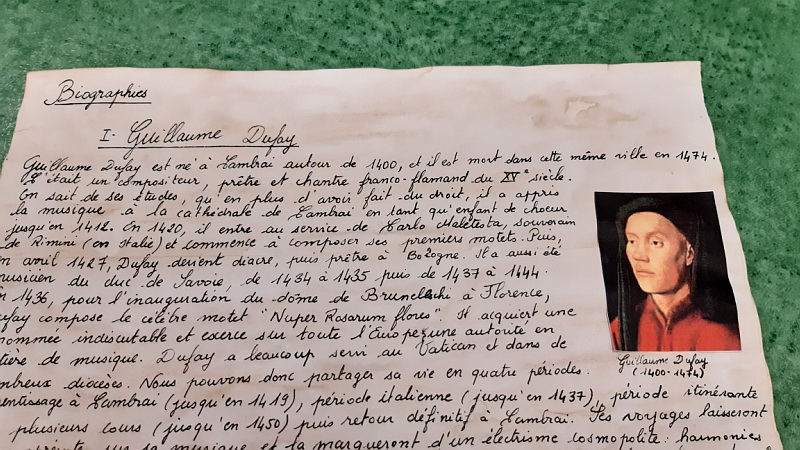 Biographies
I- Guillaume Dufay
Guillaume Dufay est né à Cambrai autour de 1400, et il est mort dans cette même ville en 1474.
C'était un compositeur, prêtre et chantre franco-flamand du XVe siècle.
On sait de ses études, qu'en plus d'avoir fait du droit, il a appris
la musique à la cathédrale de Cambrai en tant qu'enfant de choeur
jusqu'en 1412. En 1420, il entre au service de Carlo Malatesta, souverain
de Rimini (en Italie) et commence à composer ses premiers motets. Puis,
en avril 1427, Dufay devient diacre, puis prêtre à Bologne. Il a aussi été
musicien du duc de Savoie, de 1434 à 1435 puis de 1437 à 1444.
En 1436, pour l'inauguration du dôme de Brunelleschi à Florence,
Dufay compose le célèbre motet "Nuper Rosarum flores". Il acquiert une
nommée indiscutable et exerce sur toute l'Europe une autorité en
tière de musique. Dufay a beaucoup servi au Vatican et dans de
mbreux diocèses. Nous pouvons donc partager sa vie en quatre périodes:
entissage à Cambrai (jusqu'en 1419), période italienne (jusqu'en 1437), période itinérante
plusieurs cours (jusqu'en 1450) puis retour définitif à Cambrai. Ses voyages laisseront
sur sa musique et la marqueront d'un électrisme cosmopolite: harmonies
Guillaume Dufay
(1400-1474)